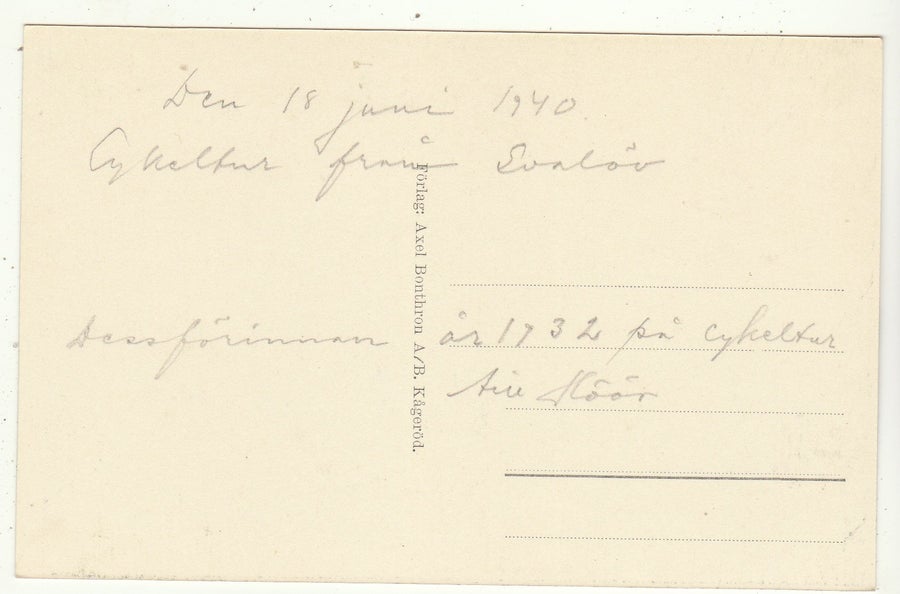 Den 18 juni 1940.
Cykeltur från Svalöv
Förlag: Axel Bonthron A/B. Kågeröd.
Dessförinnan år 1932 på cykeltur
till Höör